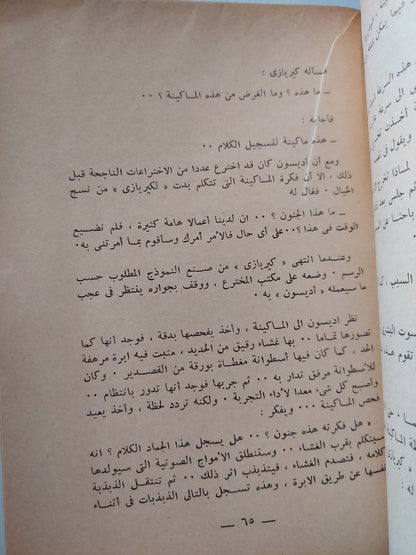 فسأله كيريازى :
ـ ما هذه ؟ وما الغرض من هذه الماكينة ؟ ٠٠
فأجابه :
ـ هذه ماكينة لتسجيل الكلام ٠٠
ومع أن اديسون كان قد اخترع عددا من الاختراعات الناجحة قبل
ذلك ، الا أن فكرة الماكينة التى تتكلم بدت « لكيريازى » من نسج
الخيال ٠ فقال له
ـ ما هذا الجنون ؟ ٠٠ ان لدينا أعمالا هامة كثيرة ، فلم نضيع
الوقت فى هذا ؟ ٠٠ على أى حال فالأمر أمرك وسأقوم بما أمرتنى به ٠
وعندما انتهى « كيريازى » من صنع النموذج المطلوب حسب
الرسم ٠ وضعه على مكتب المخترع ، ووقف بجواره ينتظر فى عجب
ما سيعمله « أديسون » به ٠
نظر اديسون الى الماكينة ، وأخذ يفحصها بدقة ، فوجد أنها كما
تصورها تماما ٠٠ بها غشاء رقيق من الحديد ، مثبت فيه ابرة مرهفة
الحد ، كما كان فيها أسطوانة مغطاة بورقة من القصدير ٠ وكان
للأسطوانة مرفق تدار به ٠٠ ثم جربها فوجد أنها تدور بانتظام ٠٠
وأصبح كل شىء معدا لأداء التجربة ٠ ولكنه تردد لحظة ، وأخذ يعيد
فحص الماكينة ٠٠٠ ويفكر :
« هل فكرته هذه جنون ؟ ٠٠ هل يسجل هذا الجماد الكلام ؟ انه
سيتكلم بقرب الغشاء ٠٠ وستنطلق الأمواج الصوتية التى سيولدها
كلامه ، فتصدم الغشاء ، فيتذبذب اثر ذلك ٠٠ ثم تنتقل الذبذبة
نفسها عن طريق الابرة ، وهذه تسجل بالتالى الذبذبات فى أثناء
ـ ٦٥ ـ